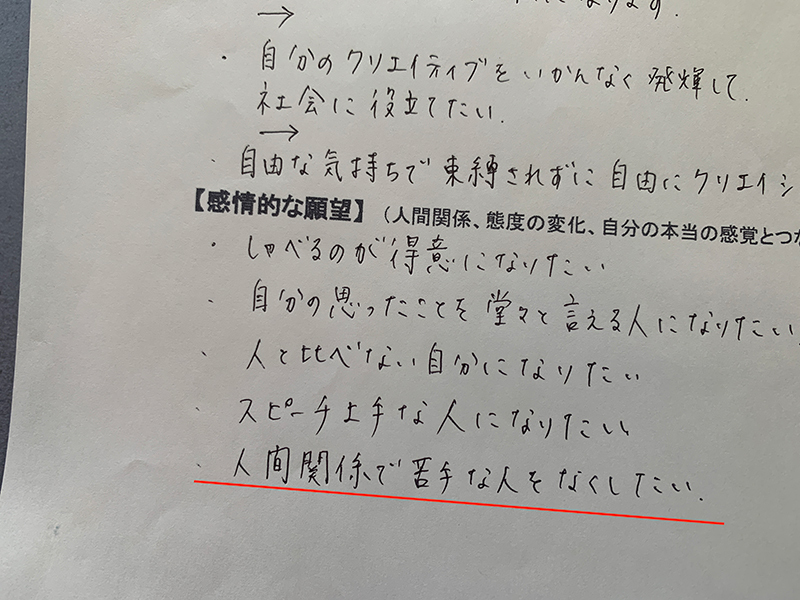 になります.
・自分のクリエイティブをいかんなく発輝して.
社会に役立てたい.
・自由な気持ちで束縛されずに自由にクリエイシ
【感情的な願望】（人間関係、態度の変化、自分の本当の感覚とつな
・しゃべるのが得意になりたい
・自分の思ったことを堂々と言える人になりたい
・人と比べない自分になりたい
・スピーチ上手な人になりたい
・人間関係で苦手な人をなくしたい.